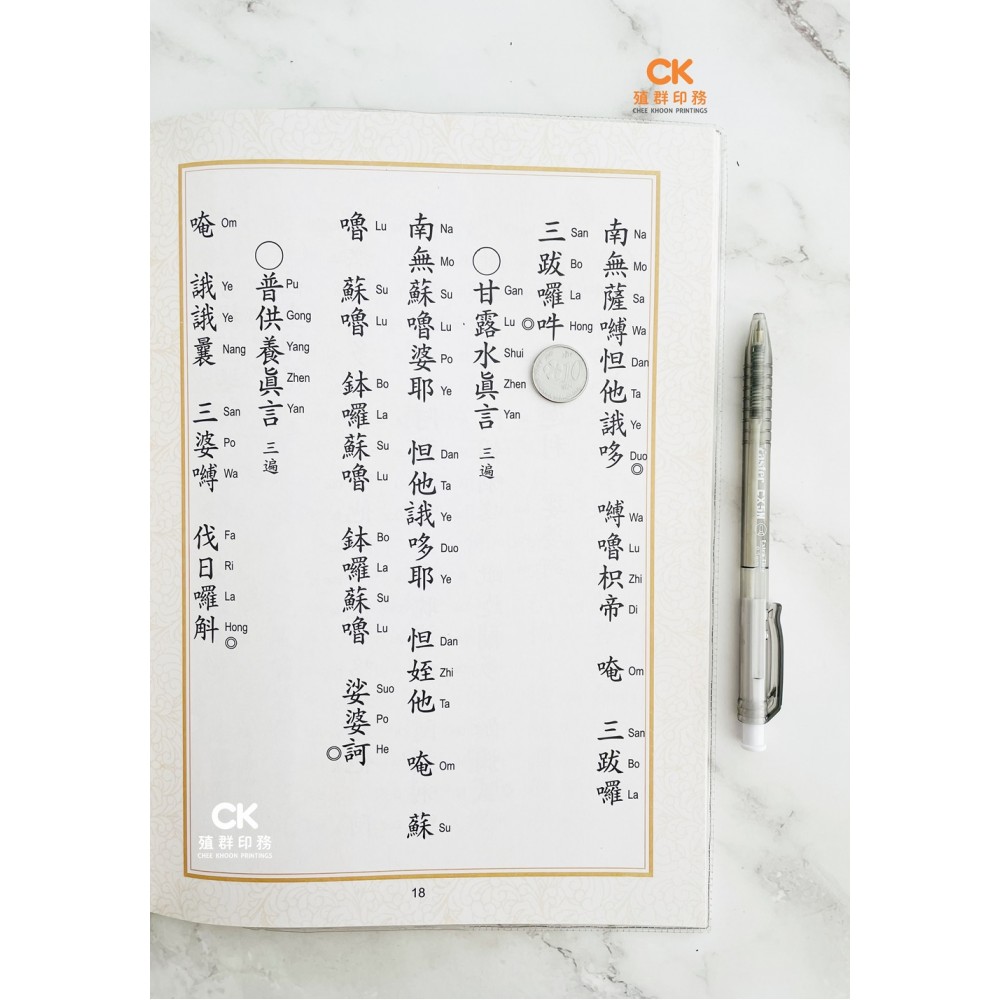 CK
殖群印務
CHEE KHOON PRINTINGS
南無薩嚩怛他誐哆◎ 嚩嚕枳帝 唵 三跋囉
Na Mo Sa Wa Dan Ta Ye Duo Wa Lu Zhi Di Om San Bo La
三跋囉吽◎
San Bo La Hong
○甘露水眞言 三遍
Gan Lu Shui Zhen Yan
南無蘇嚕婆耶 怛他誐哆耶 怛姪他 唵 蘇
Na Mo Su Lu Po Ye Dan Ta Ye Duo Ye Dan Zhi Ta Om Su
嚕 蘇嚕 鉢囉蘇嚕 鉢囉蘇嚕 娑婆訶◎
Lu Su Lu Bo La Su Lu Bo La Su Lu Suo Po He
○普供養眞言 三遍
Pu Gong Yang Zhen Yan
唵 誐誐曩 三婆嚩 伐日囉斛◎
Om Ye Ye Nang San Po Wa Fa Ri La Hong
CK
殖群印務
CHEE KHOON PRINTINGS
18